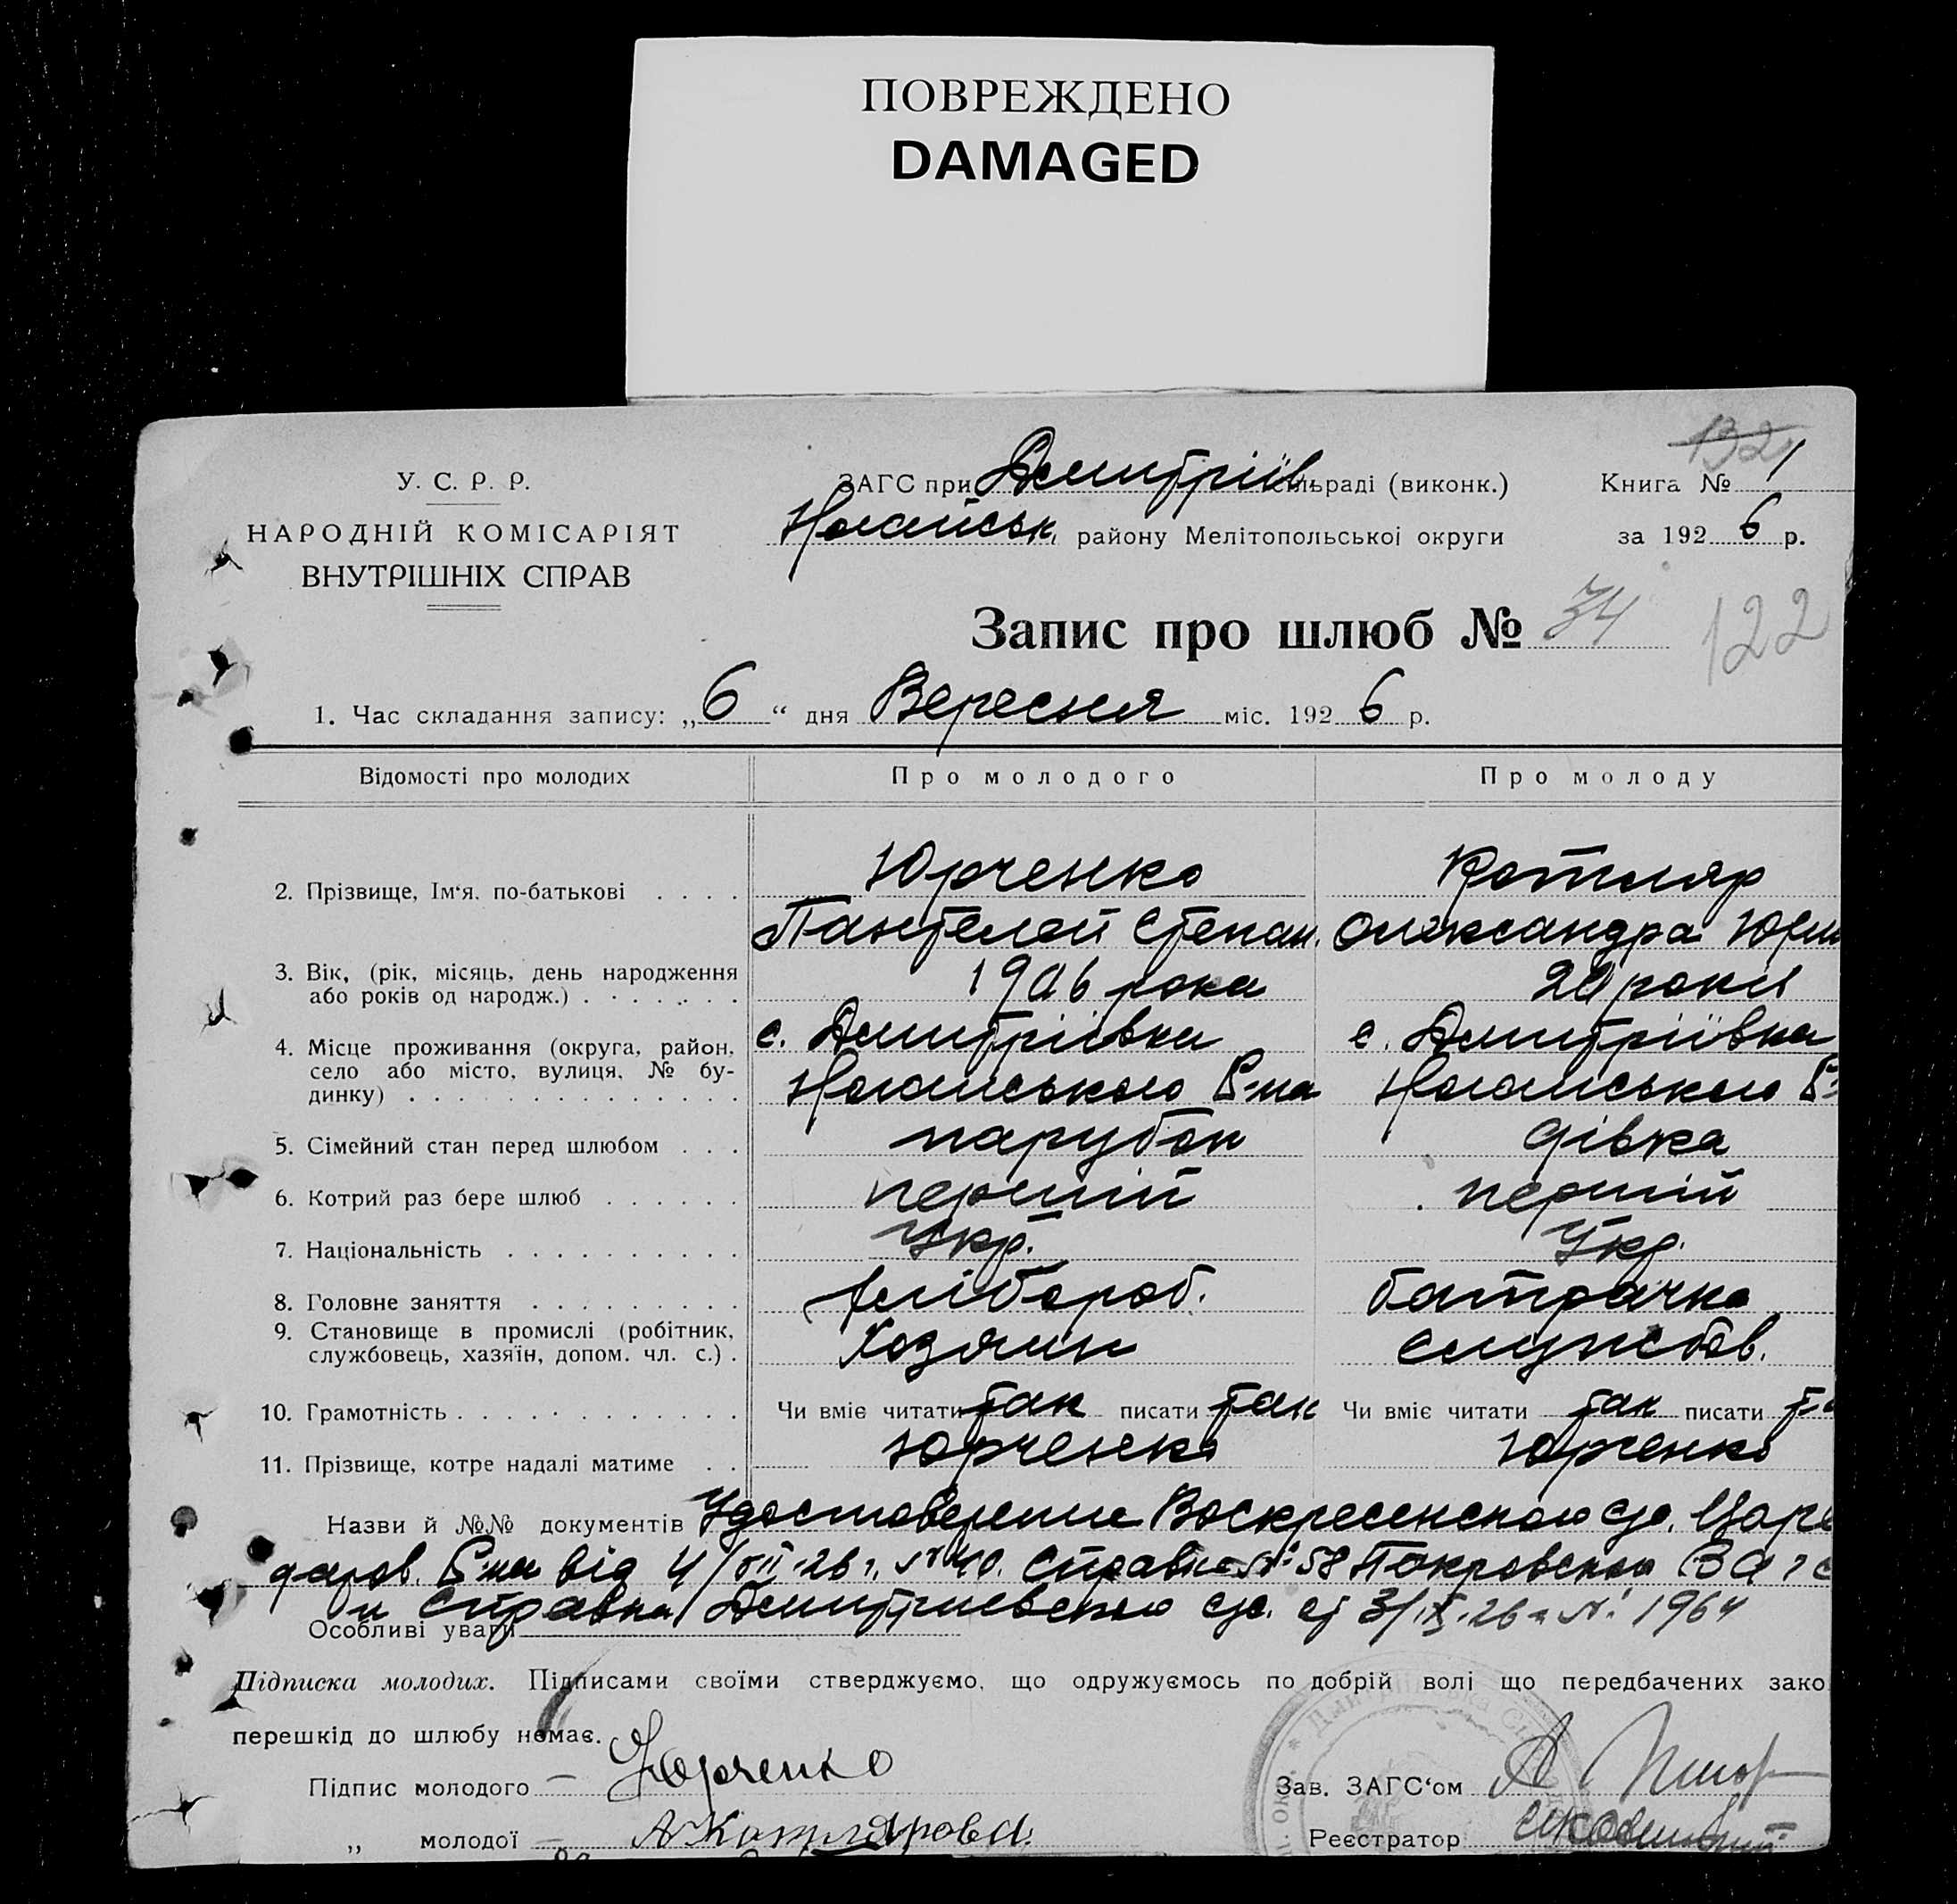 ПОВРЕЖДЕНО
DAMAGED
132
У. С. Р. Р.
НАРОДНІЙ КОМІСАРІЯТ
ВНУТРІШНІХ СПРАВ
ЗАГС при Дмитріїв сільраді (виконк.)
Ногайськ. району Мелітопольської округи
Книга № 1
за 1926 р.
Запис про шлюб № 34
122
1. Час складання запису: „6“ дня Вересня міс. 1926 р.
Відомості про молодих Про молодого Про молоду
2. Прізвище, Ім‘я, по-батькові . . . . Юрченко Котляр
Пантелей Степан. Олександра Юри
3. Вік, (рік, місяць, день народження
або років од народж.) . . . . . . . 1906 рока 20 років
4. Місце проживання (округа, район,
село або місто, вулиця, № бу-
динку) . . . . . . . . . . . . . .
с. Дмитріівка с. Дмитріївка
Ногайського Р-на Ногайського Р-
5. Сімейний стан перед шлюбом . . . парубок дівка
6. Котрий раз бере шлюб . . . . . . перший перший
7. Національність . . . . . . . . . . Укр. Укр.
8. Головне заняття . . . . . . . . . хлібороб. батрачка
9. Становище в промислі (робітник,
службовець, хазяїн, допом. чл. с.) . Хозяин службов.
10. Грамотність . . . . . . . . . . . . Чи вміє читати так писати так Чи вміє читати так писати та
11. Прізвище, котре надалі матиме . . Юрченко Юрченко
Назви й №№ документів Удостоверение Воскресенского с/с. Царе
даров. Р-на від 4/VII-26 г. № 40. Справка № 58 Покровского ЗАГС
и Справка Дмитриевского с/с. от 3/IX-26 г. № 1964
Особливі уваги
Підписка молодих. Підписами своїми стверджуємо, що одружуємось по добрій волі що передбачених зако
перешкід до шлюбу немає.
Підпис молодого Юрченко
„ молодої А Котлярова.
Зав. ЗАГС‘ом
Реєстратор